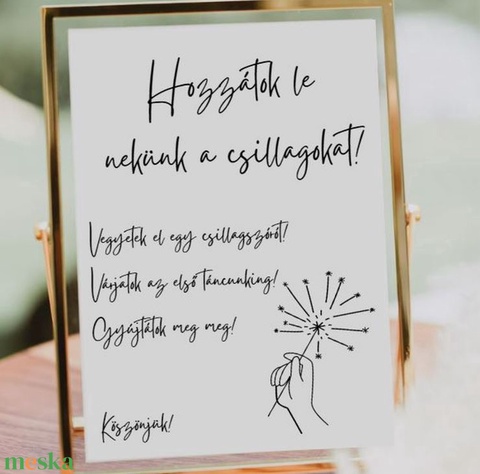 Hozzátok le
nekünk a csillagokat!
Vegyetek el egy csillagszórót!
Várjátok az első táncunking!
Gyújtátok meg meg!
Köszönjük!
meska